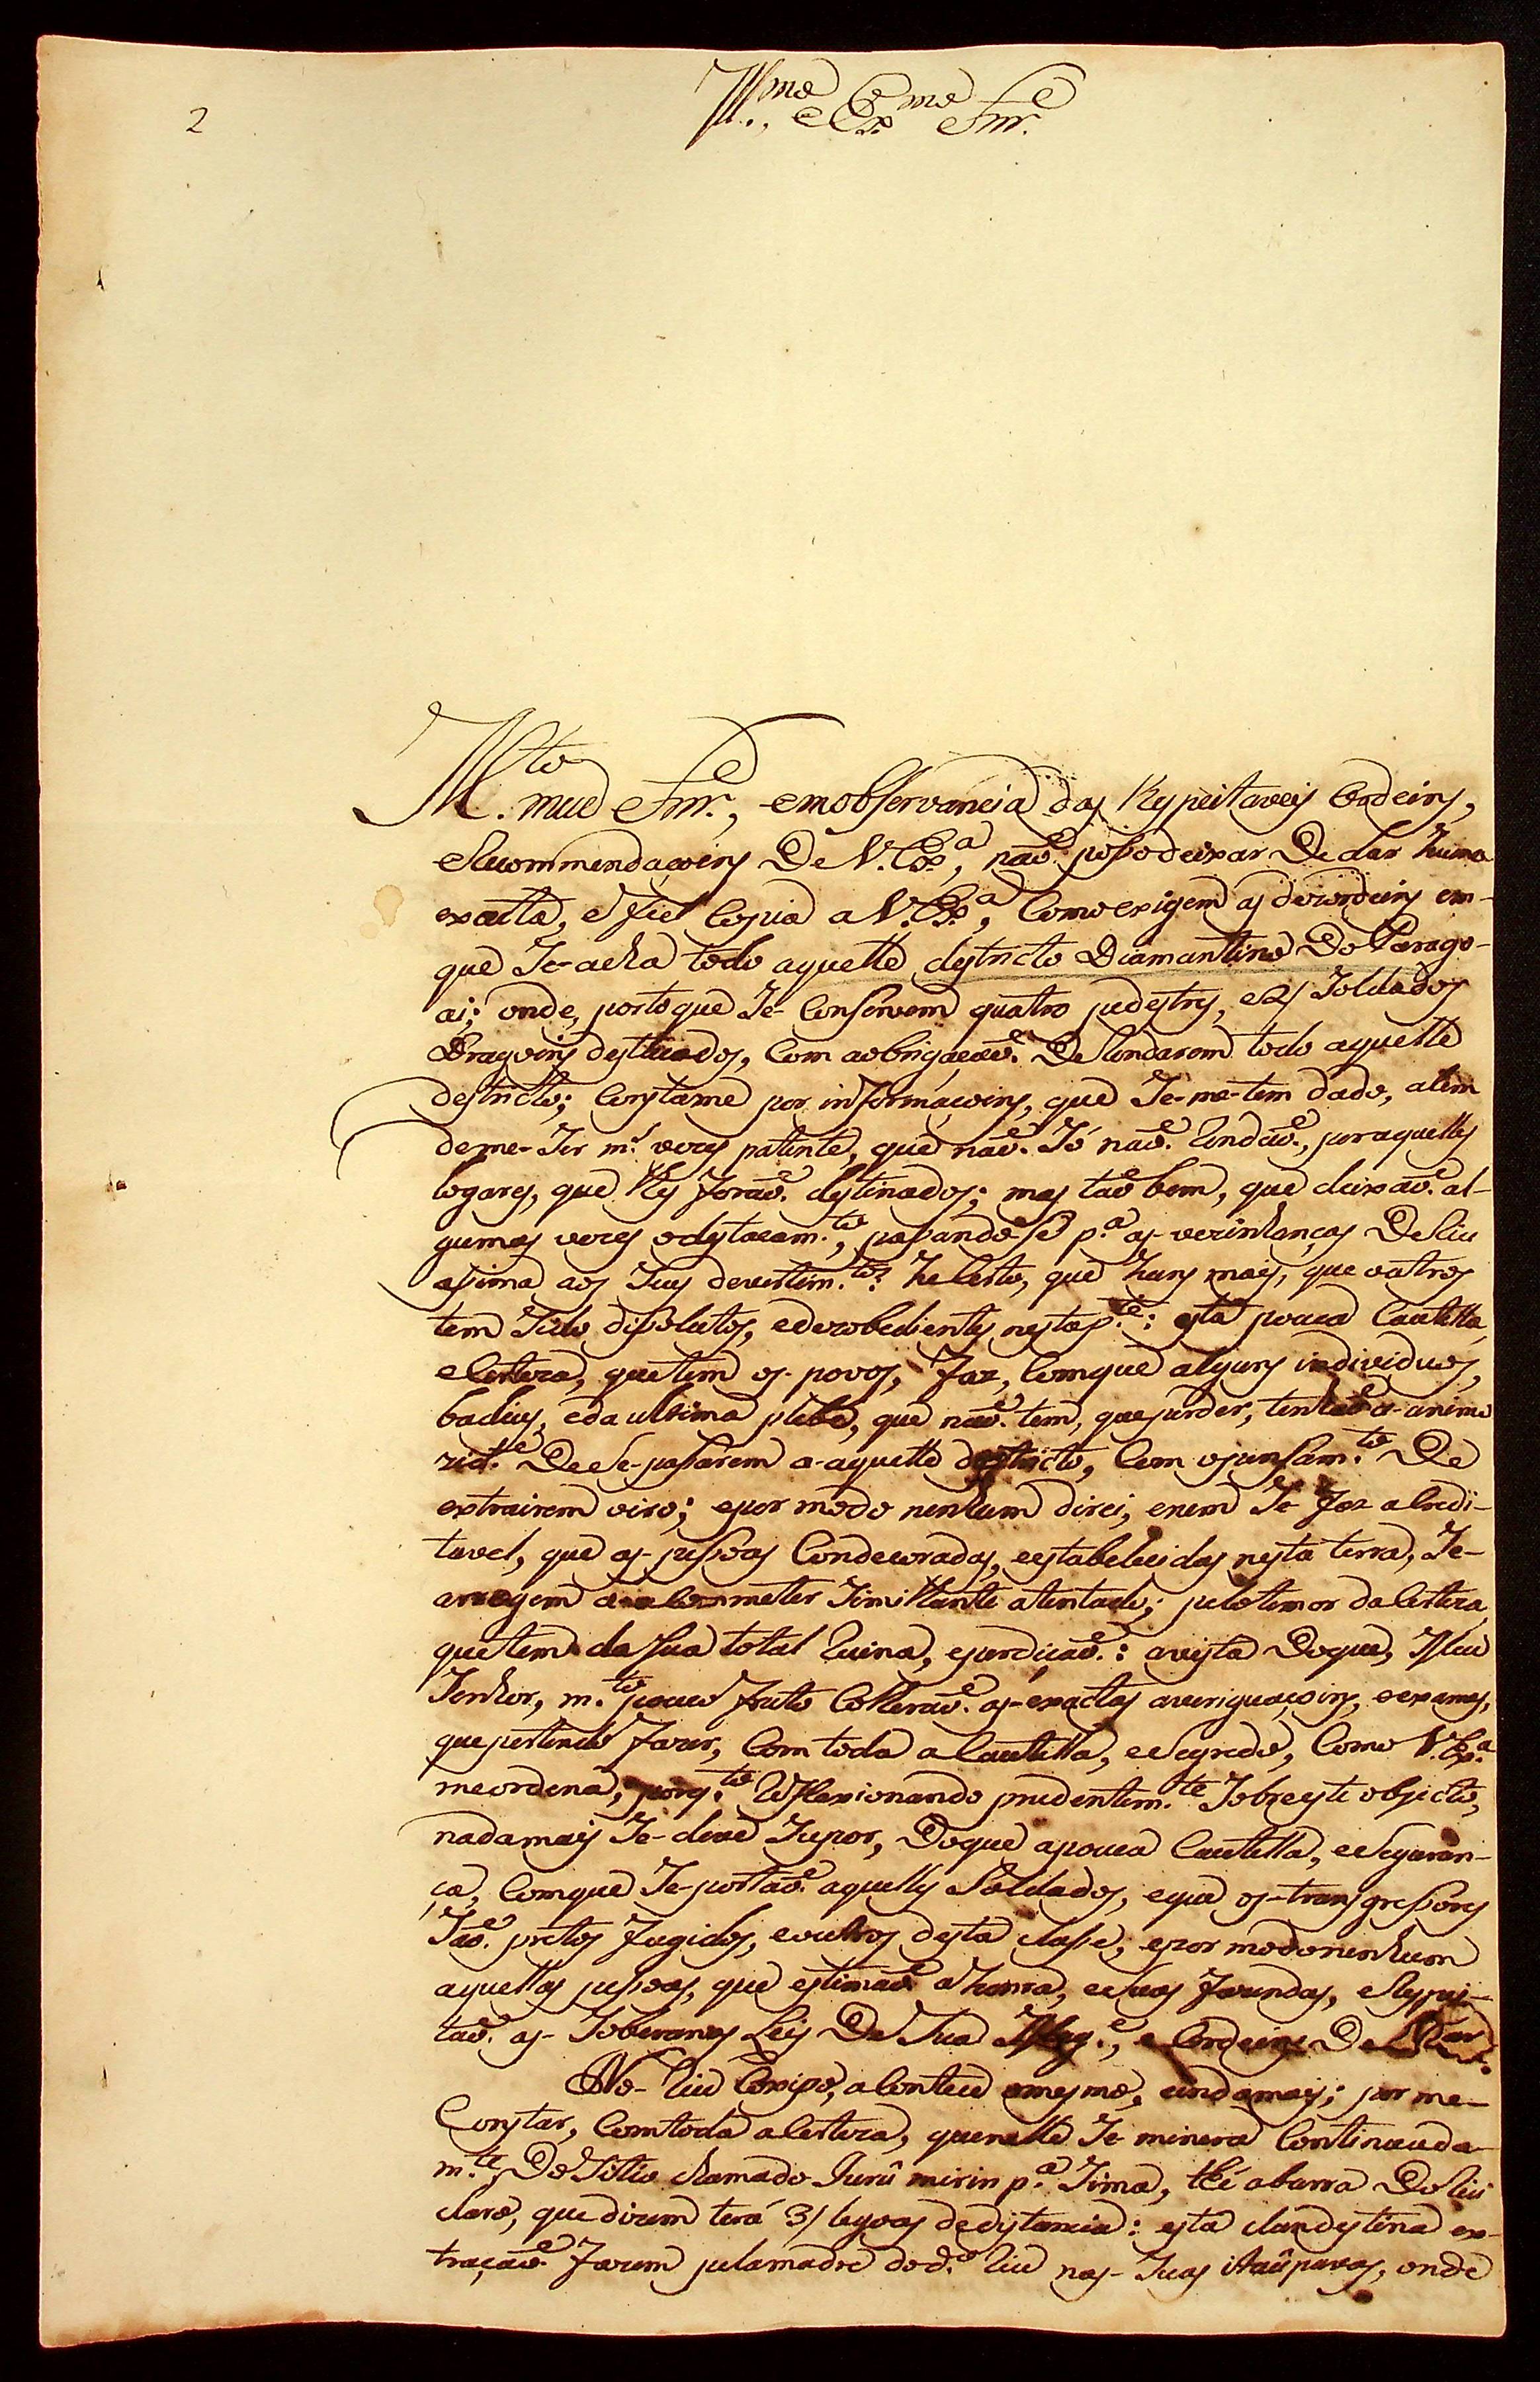 2
Ill.mo e Ex.mo Snr.
M.to meu Snr., em observancia das Respeitaveis Ordeins,
e Recommendaçoins De V. Ex.a, naõ posso deixar De dar huma
exacta, e fiel Copia a V. Ex.a, Como exigem as dezordeins em-
que Se-acha todo aquelle destricto Diamantino Do Parago-
ai; onde, posto que Se-Conservem quatro pedestres, e 2/ Soldados
Dragoins destacados, Com a obrigaçaõ. De Rondarem todo aquelle
destricto; Constame por informaçoins, que Se-me-tem dado, alem
de me-Ser m.s vezes patente, que naõ. Só naõ. Rondaõ., por aquelles
logares, que lhes foraõ. destinados; mas taõ bem, que deixaõ. al-
gumas vezes o destacam.to, passando-se p.a as vezinhanças De Riu
assima aos Seus devertim.tos: he Certo, que huns mais, que outros
tem Sido dissolutos, e dezobedientes nesta p.te: esta pouca Cautella,
e Certeza, que tem os-povos, Faz, Com que alguns individuos,
badius, e da ultima plebe, que naõ. tem, que perder, tenhaõ a-animo
zid.e De Se-passarem a-aquelle destricto, Com o pensam.to De
extrairem oiro; e por modo nenhum direi, e nem Se Faz a Credi-
tavel, que as-pessôas Condecoradas, e estabelecidas nesta terra, Se-
arrogem a Cometer Similhante atentado; pelo temor da Certeza,
que tem da sua total Ruina, e perdiçaõ.: a vista Do que, Meu
Senhor, m.to pouco Fruto Colheraõ. as-exactas averiguaçoins, e exames,
que pertendo Fazer, Com toda a Cautella, e Segredo, Como V. Ex.a
me ordena; porq.to Reflexionando prudentem.te Sobre este objecto,
nada mais Se-deve Supor, Do que a pouca Cautella, e Seguran-
ça, Com que Se-portaõ aquelles Soldados, e que os-transgressores
Saõ. pretos Fugidos, e outros desta classe; e por modo nenhum
aquellas pessoas, que estimaõ a honra, e Suas Fazendas, e Respei-
taõ. as-Soberanas Leis De Sua Mag.e, e Ordeins De
No-Riu Coxipó, a Contece o mesmo, e inda mais; por me-
Constar, Com toda a Certeza, que nelle Se minera Continuada-
m.te Do Sitio chamado Jurû mirin p.a Sima, thé a barra Do Riu
claro, que dizem terá 3/ legoas de distancia: esta clandestina ex-
traçaõ Fazem pela madre do d.o Riu nas-Suas itaûpavas, onde